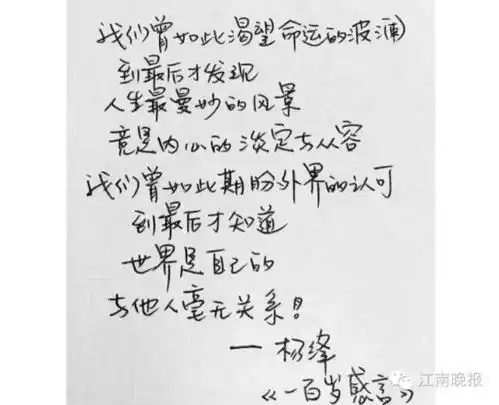 我们曾如此渴望命运的波澜
到最后才发现
人生最曼妙的风景
竟是内心的淡定与从容
我们曾如此期盼外界的认可
到最后才知道
世界是自己的
与他人毫无关系！
— 杨绛
《一百岁感言》
江南晚报